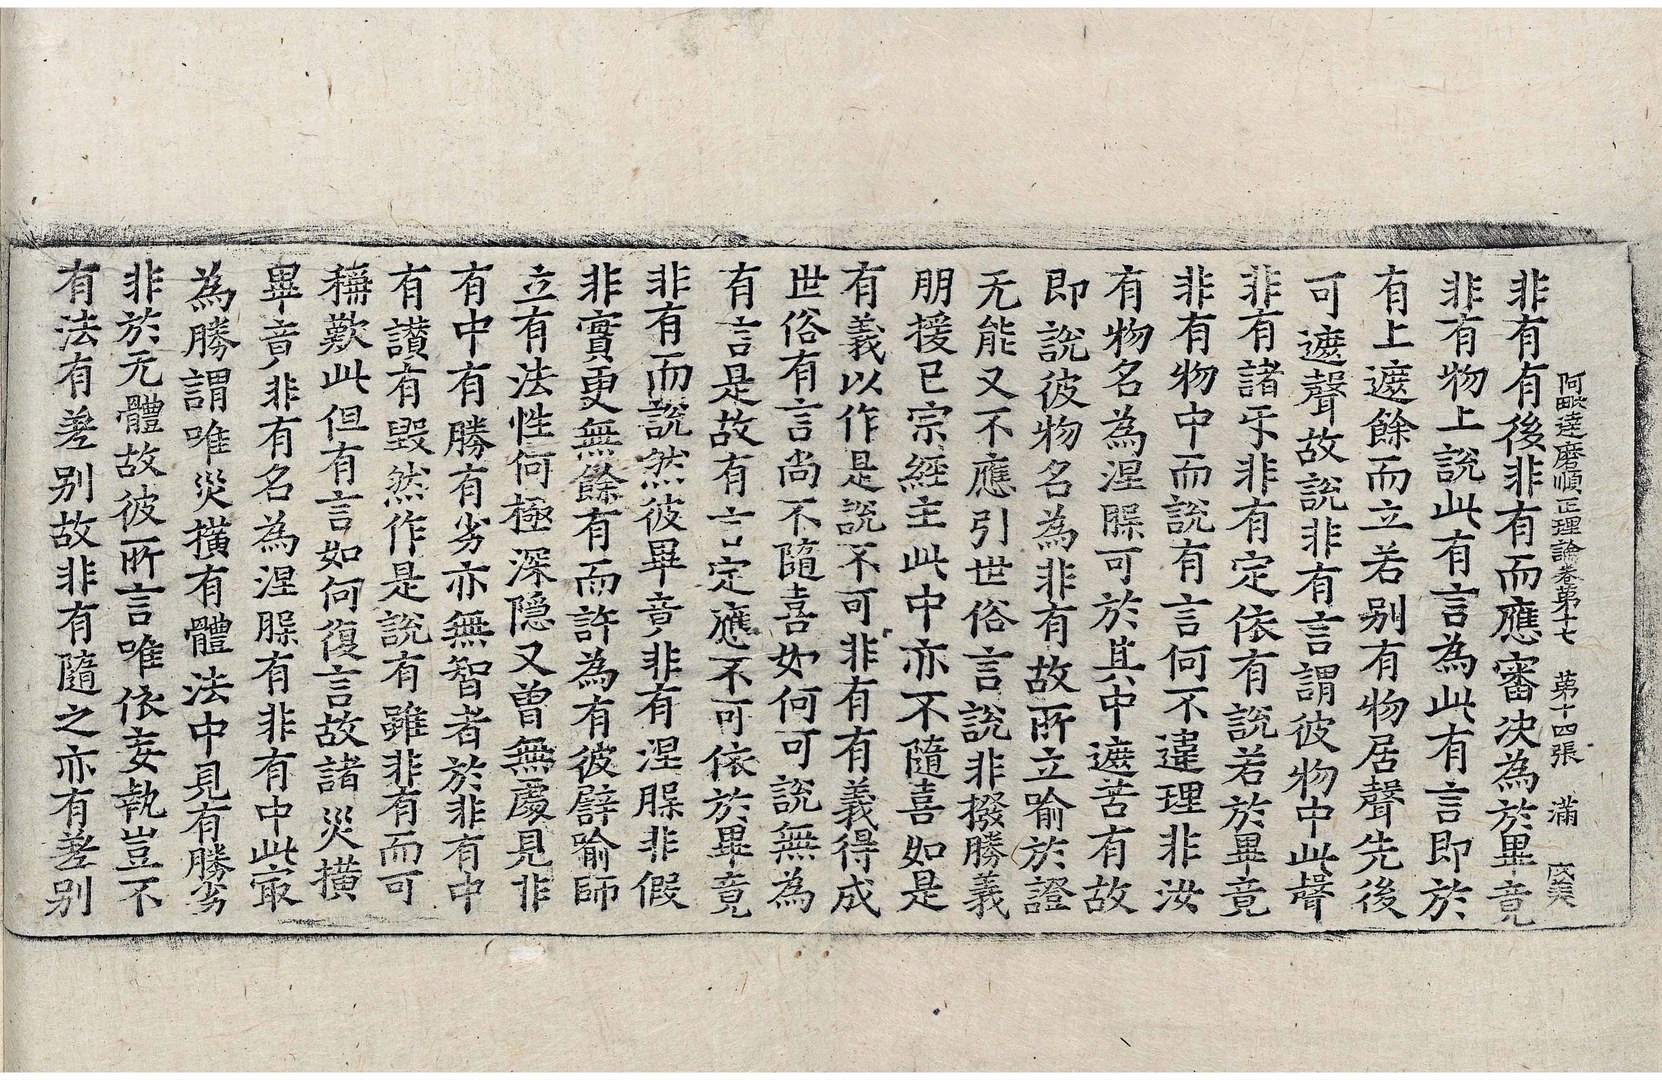 阿毗達磨順正理論卷第十七　第十四張　滿
非有有後非有而應審決為於畢竟
非有物上說此有言為此有言即於
有上遮餘而立若别有物居聲先後
可遮聲故說非有言謂彼物中此聲
非有諸乎非有定依有說若於畢竟
非有物中而說有言何不違理非汝
有物名為涅槃可於其中遮苦有故
即說彼物名為非有故所立喻於證
无能又不應引世俗言說非撥勝義
朋援已宗經主此中亦不隨喜如是
有義以作是說不可非有有義得成
世俗有言尚不隨喜如何可說無為
有言是故有言定應不可依於畢竟
非有而說然彼畢竟非有涅槃非假
非實更無餘有而許為有彼譬喻師
立有法性何極深隱又曾無處見非
有中有勝有劣亦無智者於非有中
有讚有毀然作是說有雖非有而可
稱歎此但有言如何復言故諸災橫
畢竟非有名為涅槃有非有中此㝡
為勝謂唯災橫有體法中見有勝劣
非於无體故彼所言唯依妄執豈不
有法有差别故非有隨之亦有差别